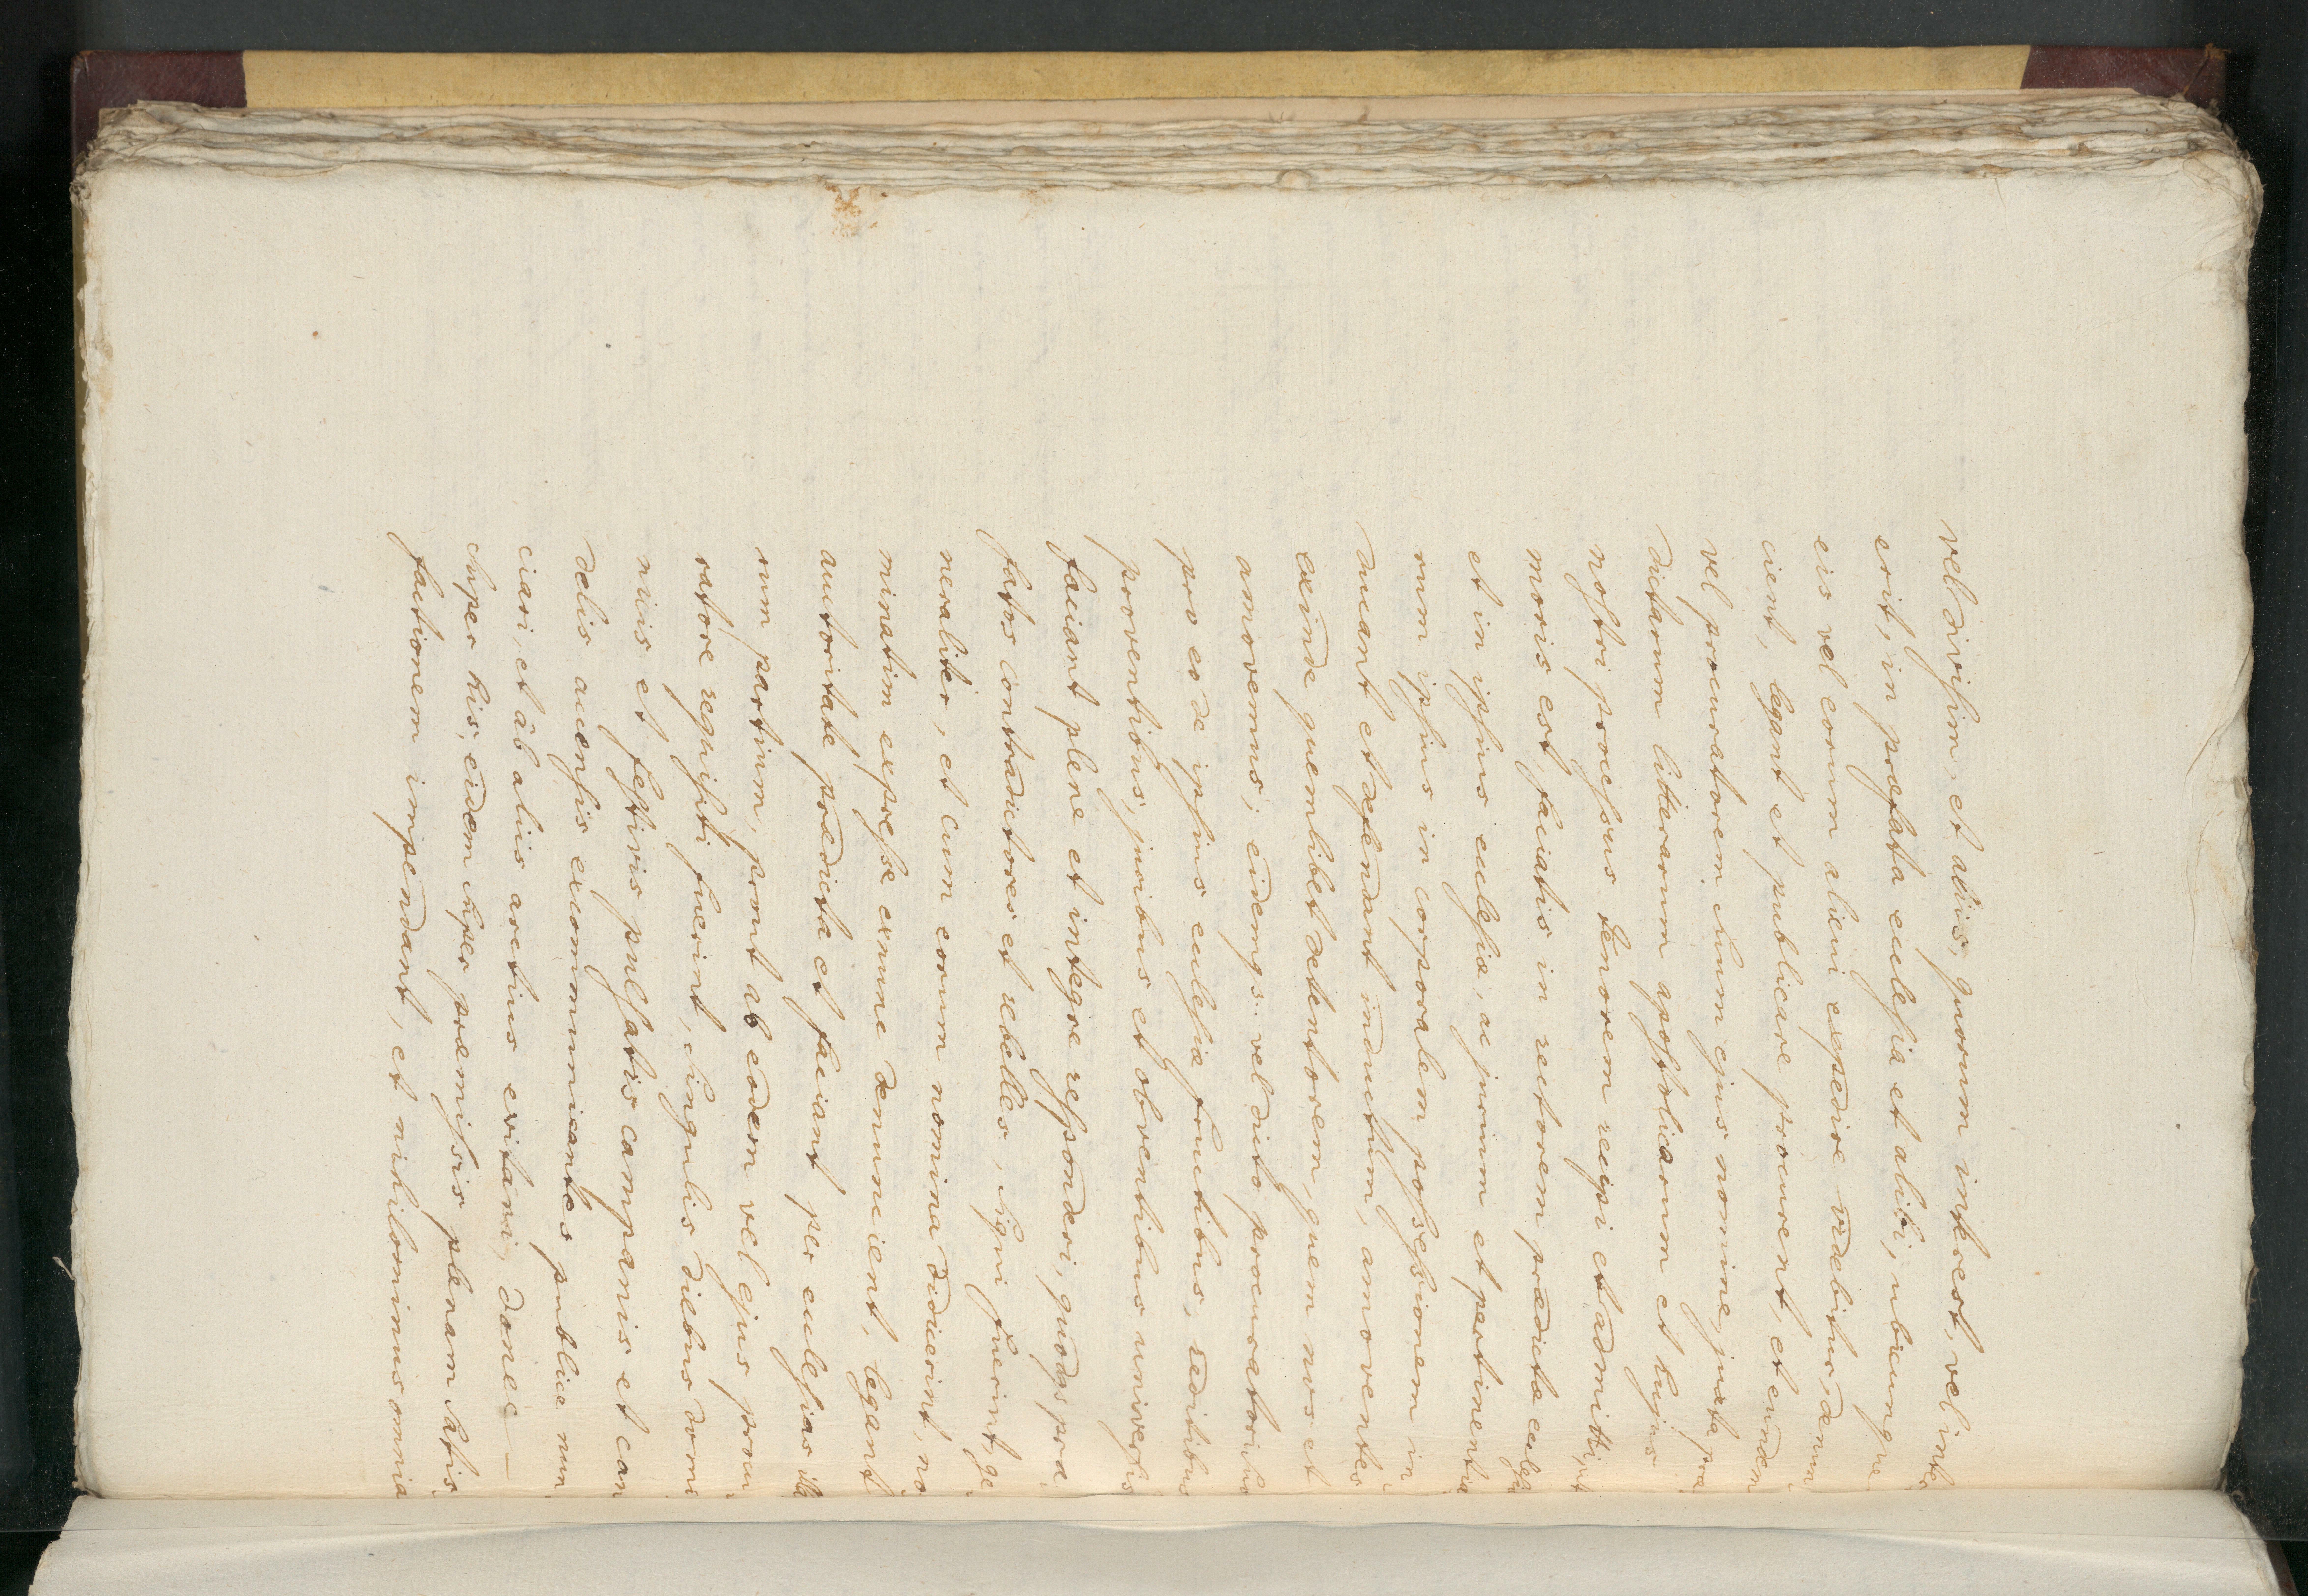 vel divisim, et aliis, quorum interest, vel inter
erit, in præfata ecclesia et alibi, ubicunque
eis vel eorum alicui expedire videbitur, denun
cient, legant et publicare procurent, et eundem
vel procuratorem suum ejus nomine, juxta præ
dictarum litterarum apostolicarum et hujus
nostri processus tenorem recipi et admitti, ut
moris est, faciatis in rectorem prædictæ ecclesiæ
et in ipsius ecclesiæ, ac jurium et pertinentia
rum ipsius in corporalem possessionem in
ducant et defendant inductum, amoventes
exinde quemlibet detentorem, quem nos et
amovemus; eidemqs. vel dicto procuratori suo
pro eo de ipsius ecclesiæ fructibus, redditibus
proventibus, juribus et obventibus universis
faciant plene et integre responderi, quodqs præ
fatos contradictores et rebelles, siqui fuerint, ge
neraliter, et cum eorum nomina didicerint, no
minatim expresse exnunc denuncient, legant
auctoritate prædicta et faciant per ecclesias illa
rum partium, prout ab eodem vel ejus procu
ratore requisiti fuerint, singulis diebus domi
nicis et festivis pulsatis campanis et can
delis accensis excommunicantes publice nun
ciari, et ab aliis arctius evitari, donec —
super his, eidem super præmissis plenam satis
factionem impendant, et nihilominus omnia